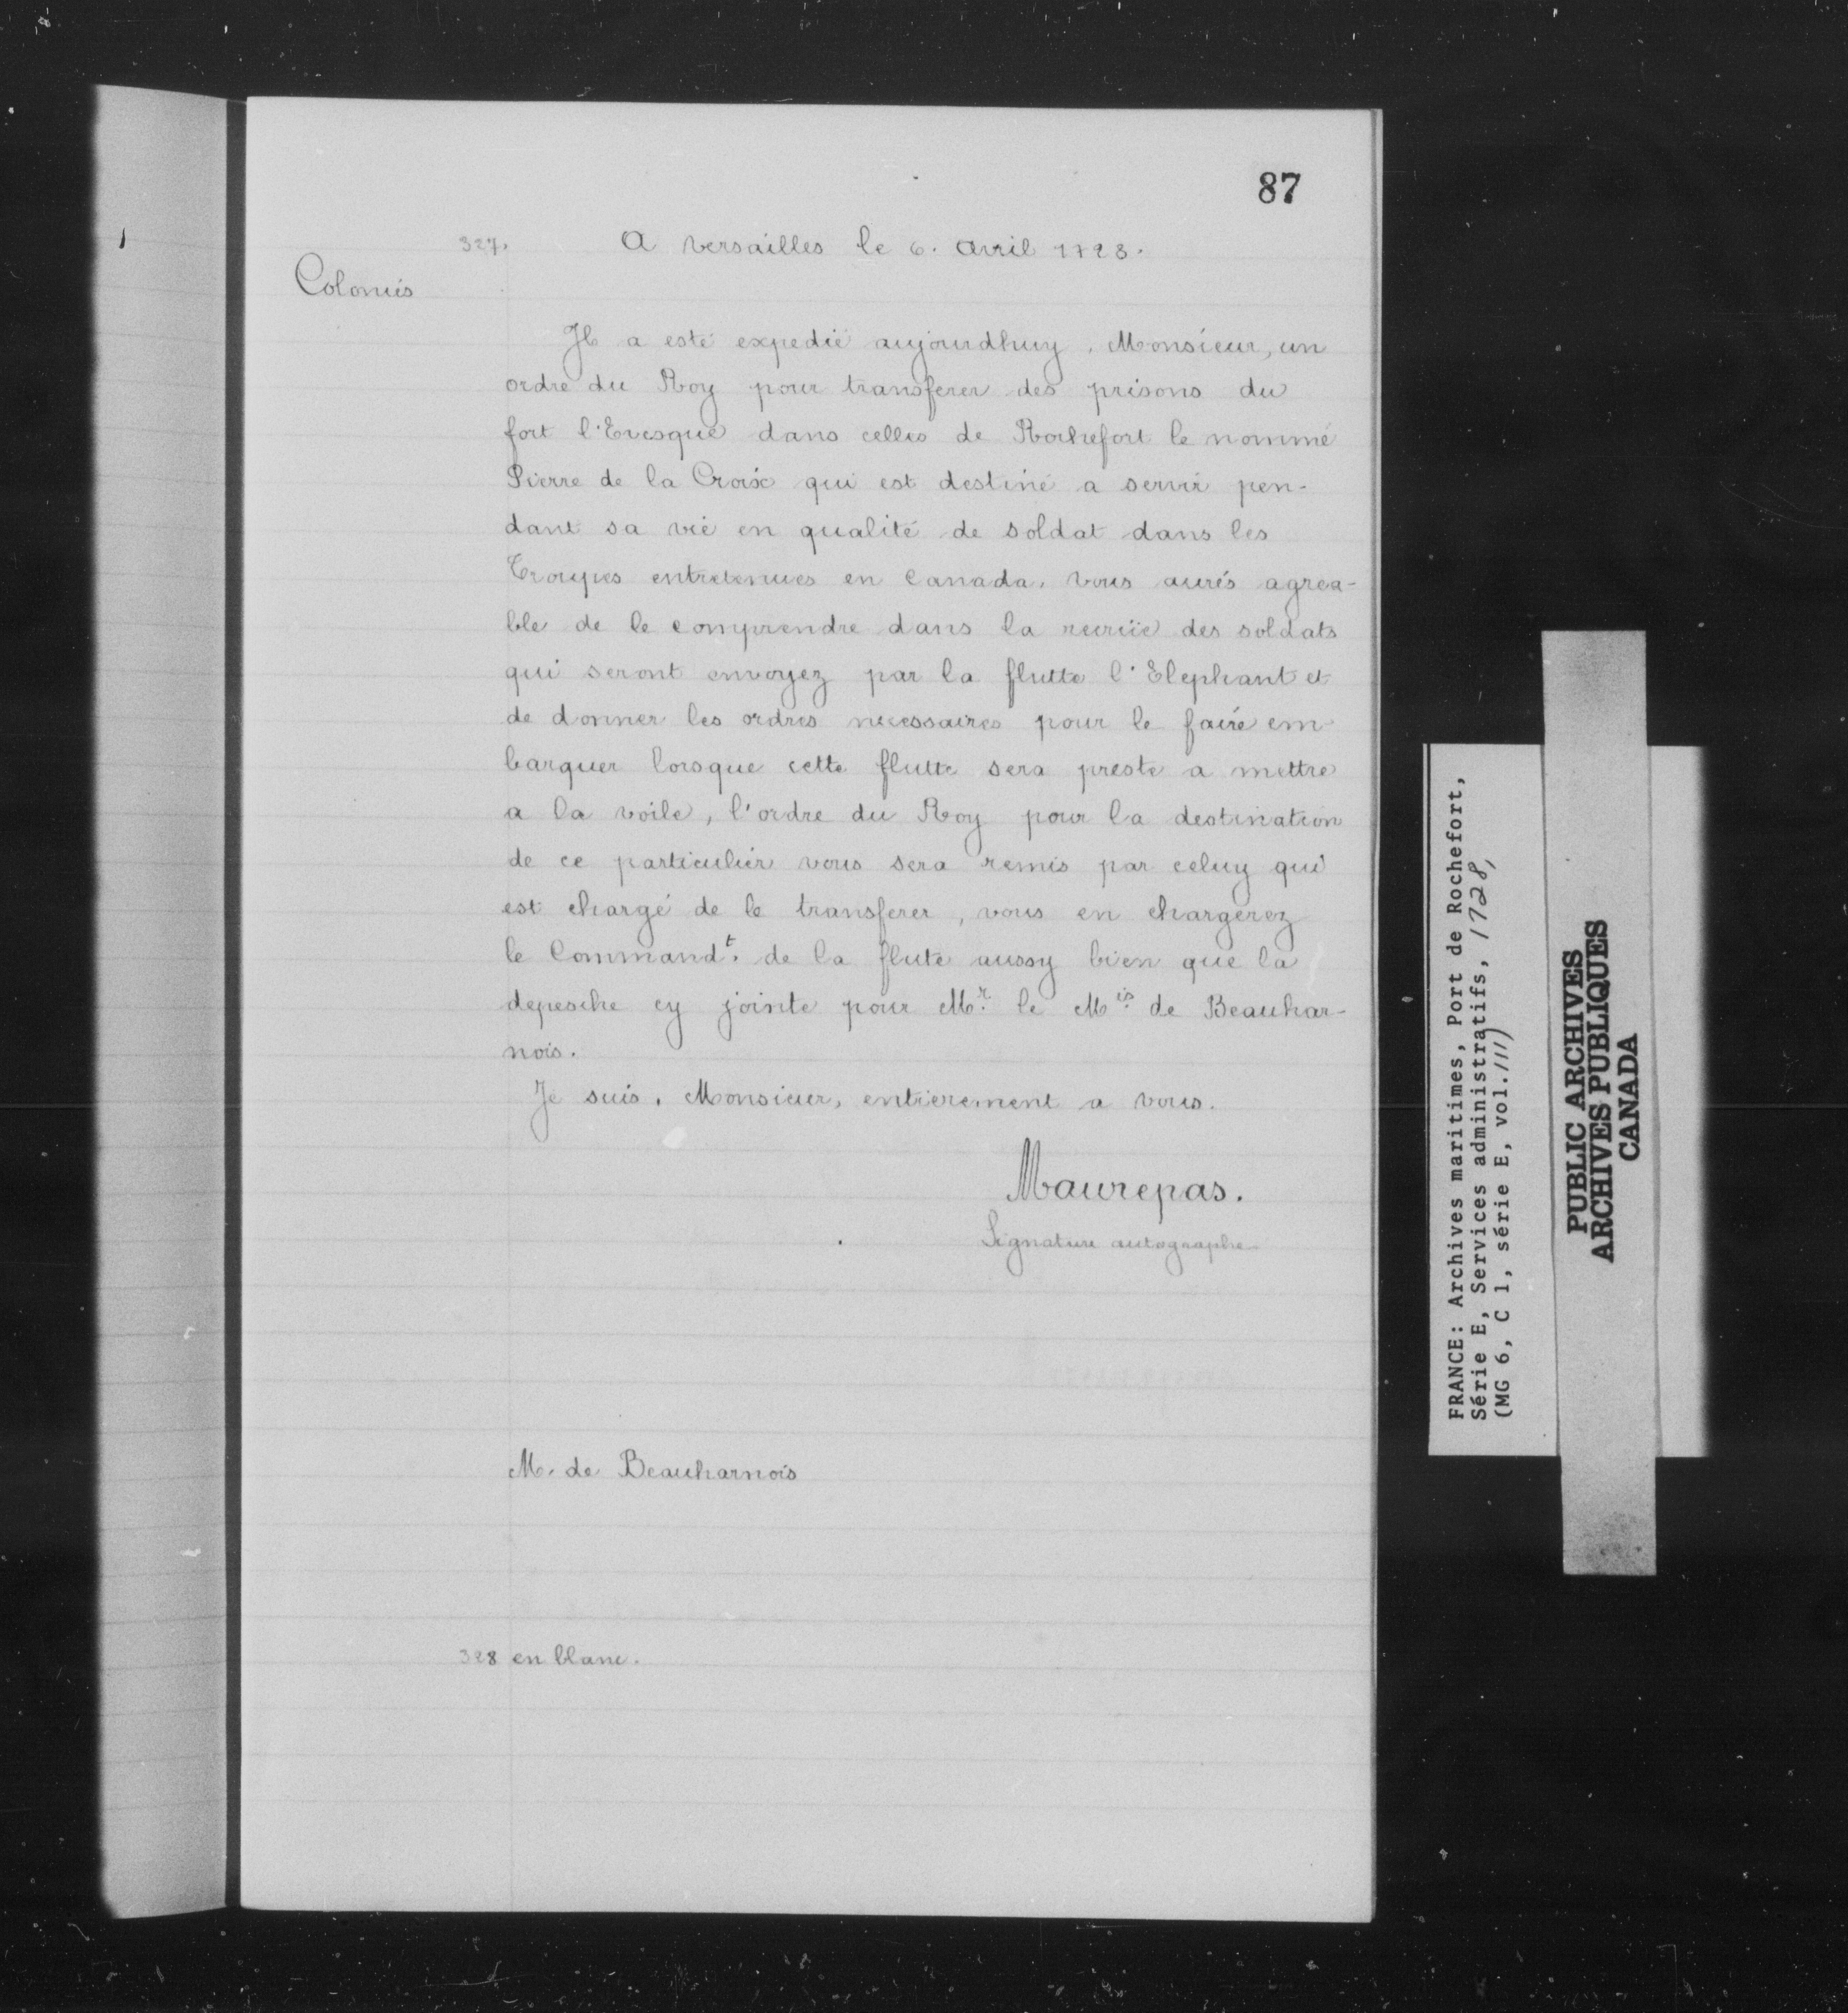 87
327. A versailles le 6. avril 1728.
Colonies
Il a esté expedié aujourdhuy, Monsieur, un
ordre du Roy pour transferer des prisons du
fort l'Evesque dans celles de Rochefort le nommé
Pierre de la Croix qui est destiné a servir pen-
dant sa vie en qualité de soldat dans les
Troupes entretenues en Canada, vous aurés agrea-
ble de le comprendre dans la recrüe des soldats
qui seront envoyez par la flutte l'Elephant et
de donner les ordres necessaires pour le faire em
barquer lorsque cette flutte sera preste a mettre
a la voile, l'ordre du Roy pour la destination
de ce particulier vous sera remis par celuy qui
est chargé de le transferer, vous en chargerez
le Commandt. de la flute aussy bien que la
depesche cy jointe pour Mr. le Mis. de Beauhar-
nois.
Je suis, Monsieur, entierement a vous.
Maurepas.
Signature autographe
M. de Beauharnois
328 en blanc.
FRANCE: Archives maritimes, Port de Rochefort,
Série E, Services administratifs, 1728,
(MG 6, C 1, série E, vol. 111)
PUBLIC ARCHIVES
ARCHIVES PUBLIQUES
CANADA